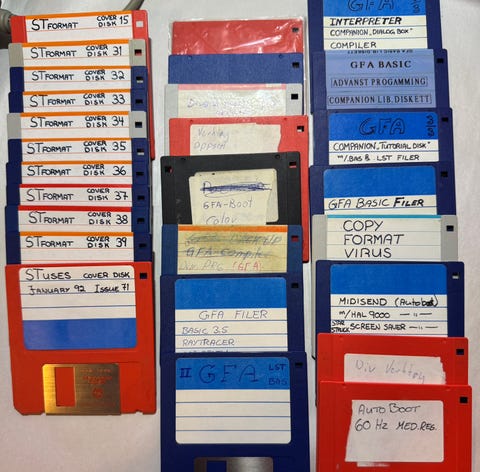 ST FORMAT COVER DISK 15
ST FORMAT COVER DISK 31
ST FORMAT COVER DISK 32
ST FORMAT COVER DISK 33
ST FORMAT COVER DISK 34
ST FORMAT COVER DISK 35
ST FORMAT COVER DISK 36
ST FORMAT COVER DISK 37
ST FORMAT COVER DISK 38
ST FORMAT COVER DISK 39
ST USES COVER DISK
JANUARY 92 ISSUE 71
Verktøy
GFA-BOOT
Color
GFA-Compile
(GFA)
GFA FILER
BASIC 3.5
RAYTRACER
II GFA LST
BAS
GFA
INTERPRETER
COMPANION "DIALOG BOX"
COMPILER
GFA BASIC
ADVANST PROGAMMING
COMPANION LIB. DISKETT
GFA
COMPANION "TUTORIAL DISK"
M/.BAS & .LST FILER
GFA BASIC FILER
COPY
FORMAT
VIRUS
MIDISEND (Autoboot)
M/HAL 9000 — " —
STAR STRUCK SCREEN SAVER — " —
Div. Verktøy
AUTO BOOT
60 HZ MED.REG.